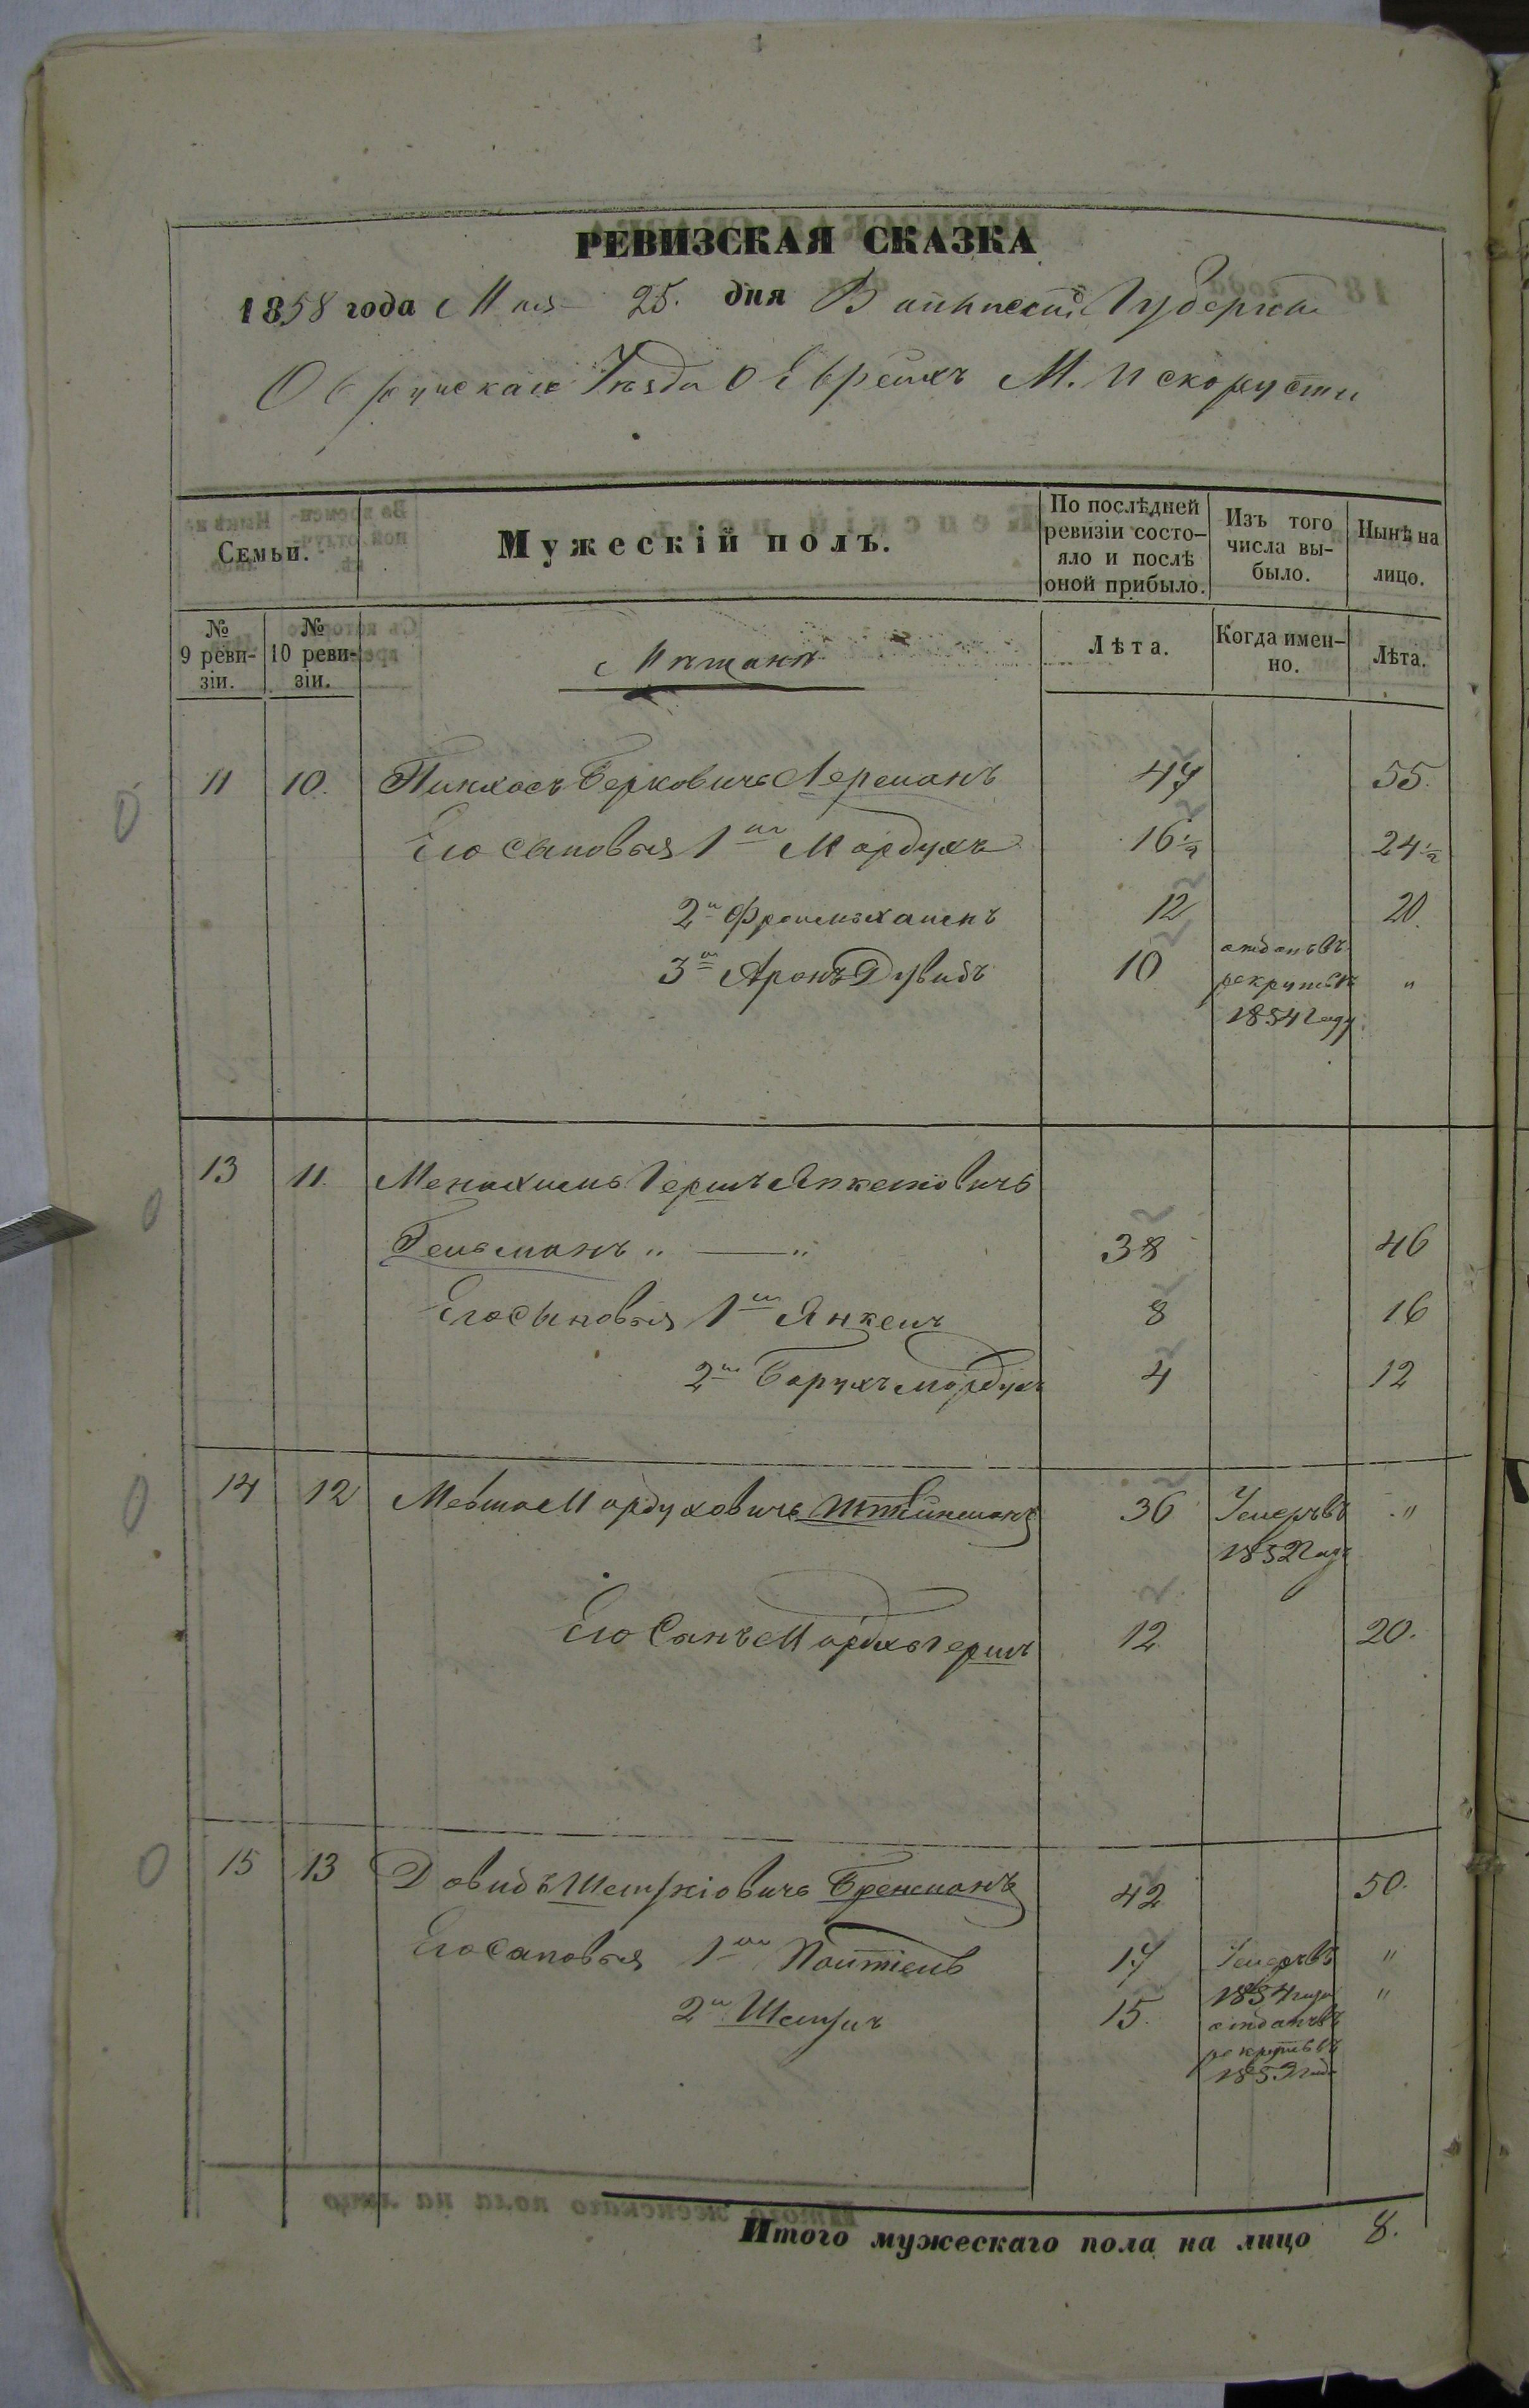 РЕВИЗСКАЯ СКАЗКА
1858 года Мая 25. дня Волынской Губерніи
Овручскаго Уѣзда О Евреяхъ М. Искорусти
Семьи.
Мужескій полъ.
По послѣдней ревизіи состо-
яло и послѣ оной прибыло.
Изъ того числа вы-
было.
Нынѣ на лицо.
№ 9 реви-
зіи.
№ 10 реви-
зіи.
Мѣщане
Лѣта.
Когда имен-
но.
Лѣта.
11 10. Пинхосъ Берковичъ Лерманъ 47 55.
Его сыновья 1й Мордухъ 16½ 24½
2й 12 20.
3й Аронъ Дувидъ 10 отданъ въ рекруты въ 1854 году "
13 11. Менахимъ Гершъ Янкелевичъ
Гельманъ " — " 38 46
Его сыновья 1й Янкель 8 16
2й Борухъ Мордухъ 4 12
14 12 Мовша Мордуховичъ 36 Умеръ въ 1852 году "
Его Сынъ Мордхо Гершъ 12 20.
15 13 Довидъ Бренманъ 42 50.
Его сыновья 1й 17 Умеръ въ 1854 году "
2й 15. отданъ въ рекруты въ 1853 году "
Итого мужескаго пола на лицо 8.